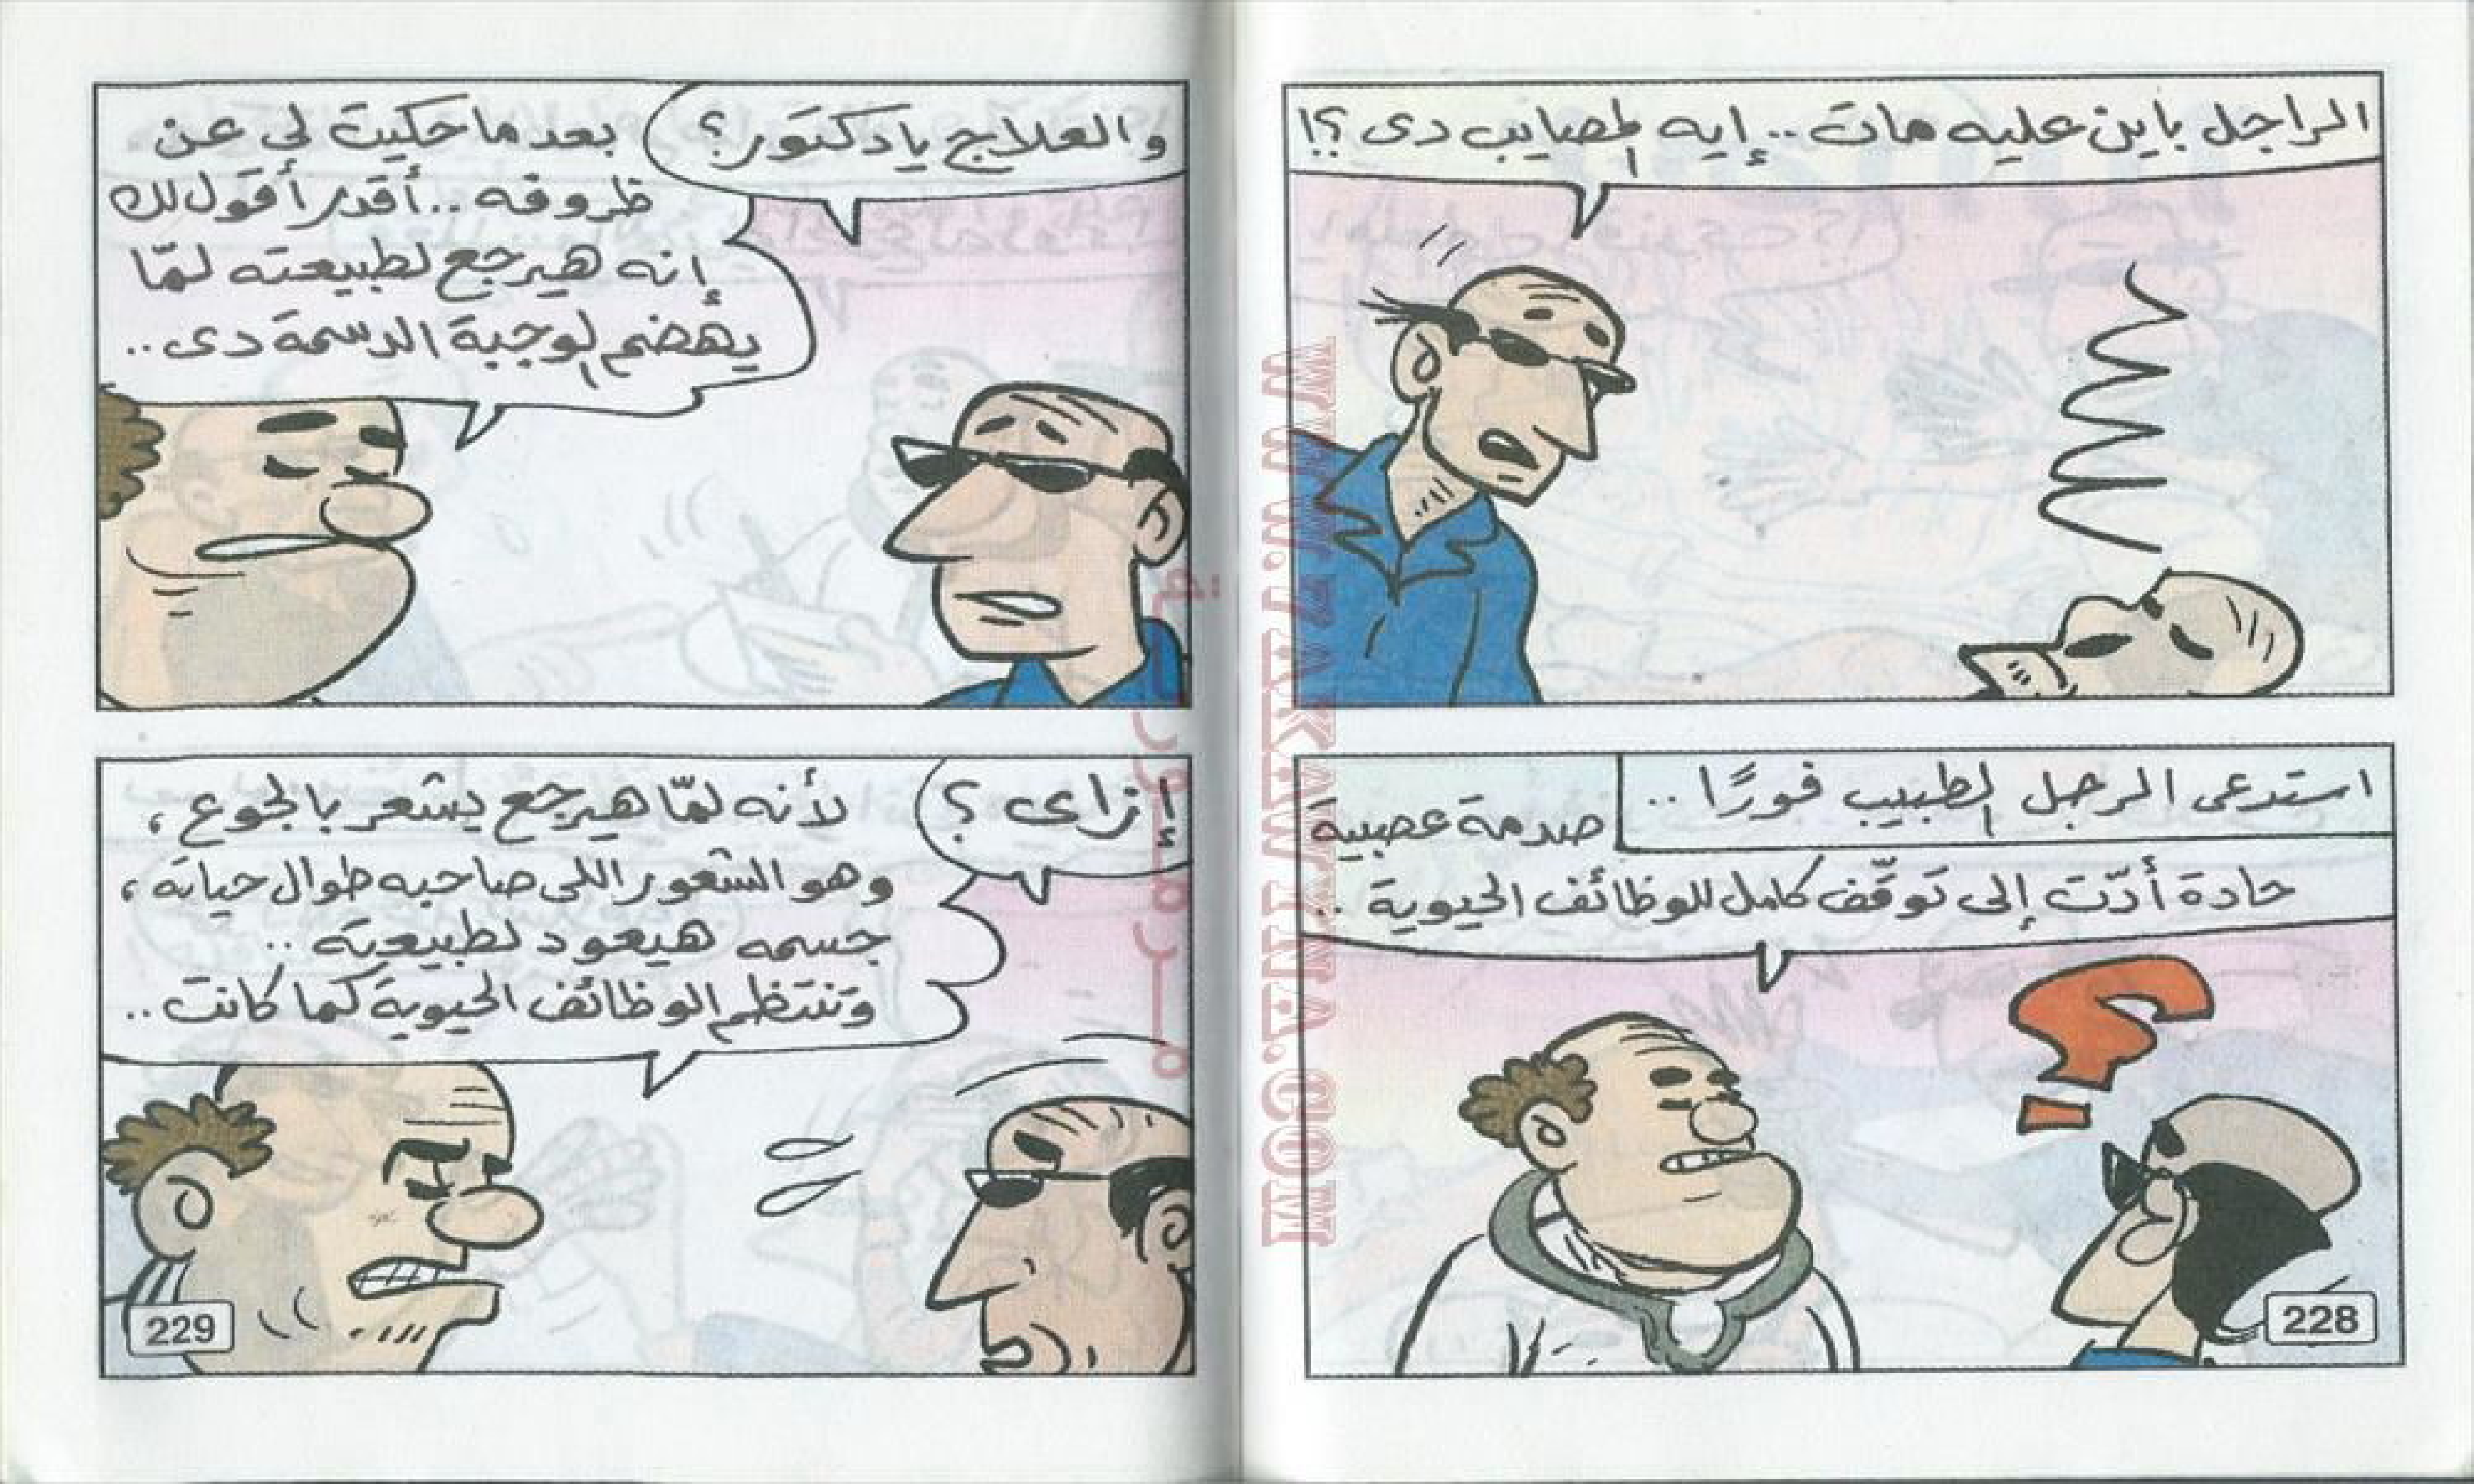 الراجل باين عليه مات.. إيه المصايب دى ؟!
استدعى الرجل الطبيب فورًا ..
صدمة عصبية
حادة أدّت إلى توقّف كامل للوظائف الحيوية ..
228
والعلاج يا دكتور؟
بعد ما حكيت لى عن
ظروفه .. أقدر أقول لك
إنه هيرجع لطبيعته لمّا
يهضم الوجبة الدسمة دى ..
إزاى ؟
لأنه لمّا هيرجع يشعر بالجوع ،
وهو الشعور اللى صاحبه طوال حياته ،
جسمه هيعود لطبيعته ..
وتنتظم الوظائف الحيوية كما كانت ..
229